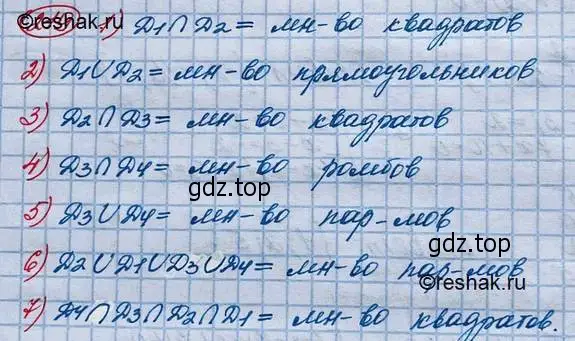 ©reshak.ru 1) D₁∩D₂ = мн-во квадратов
2) D₁∪D₂ = мн-во прямоугольников
3) D₂∩D₃ = мн-во квадратов
4) D₃∩D₄ = мн-во ромбов
gdz.top
5) D₃∪D₄ = мн-во пар-мов
gdz.top
6) D₂∪D₁∪D₃∪D₄ = мн-во пар-мов
7) D₄∩D₃∩D₂∩D₁ = мн-во квадратов.
©reshak.ru